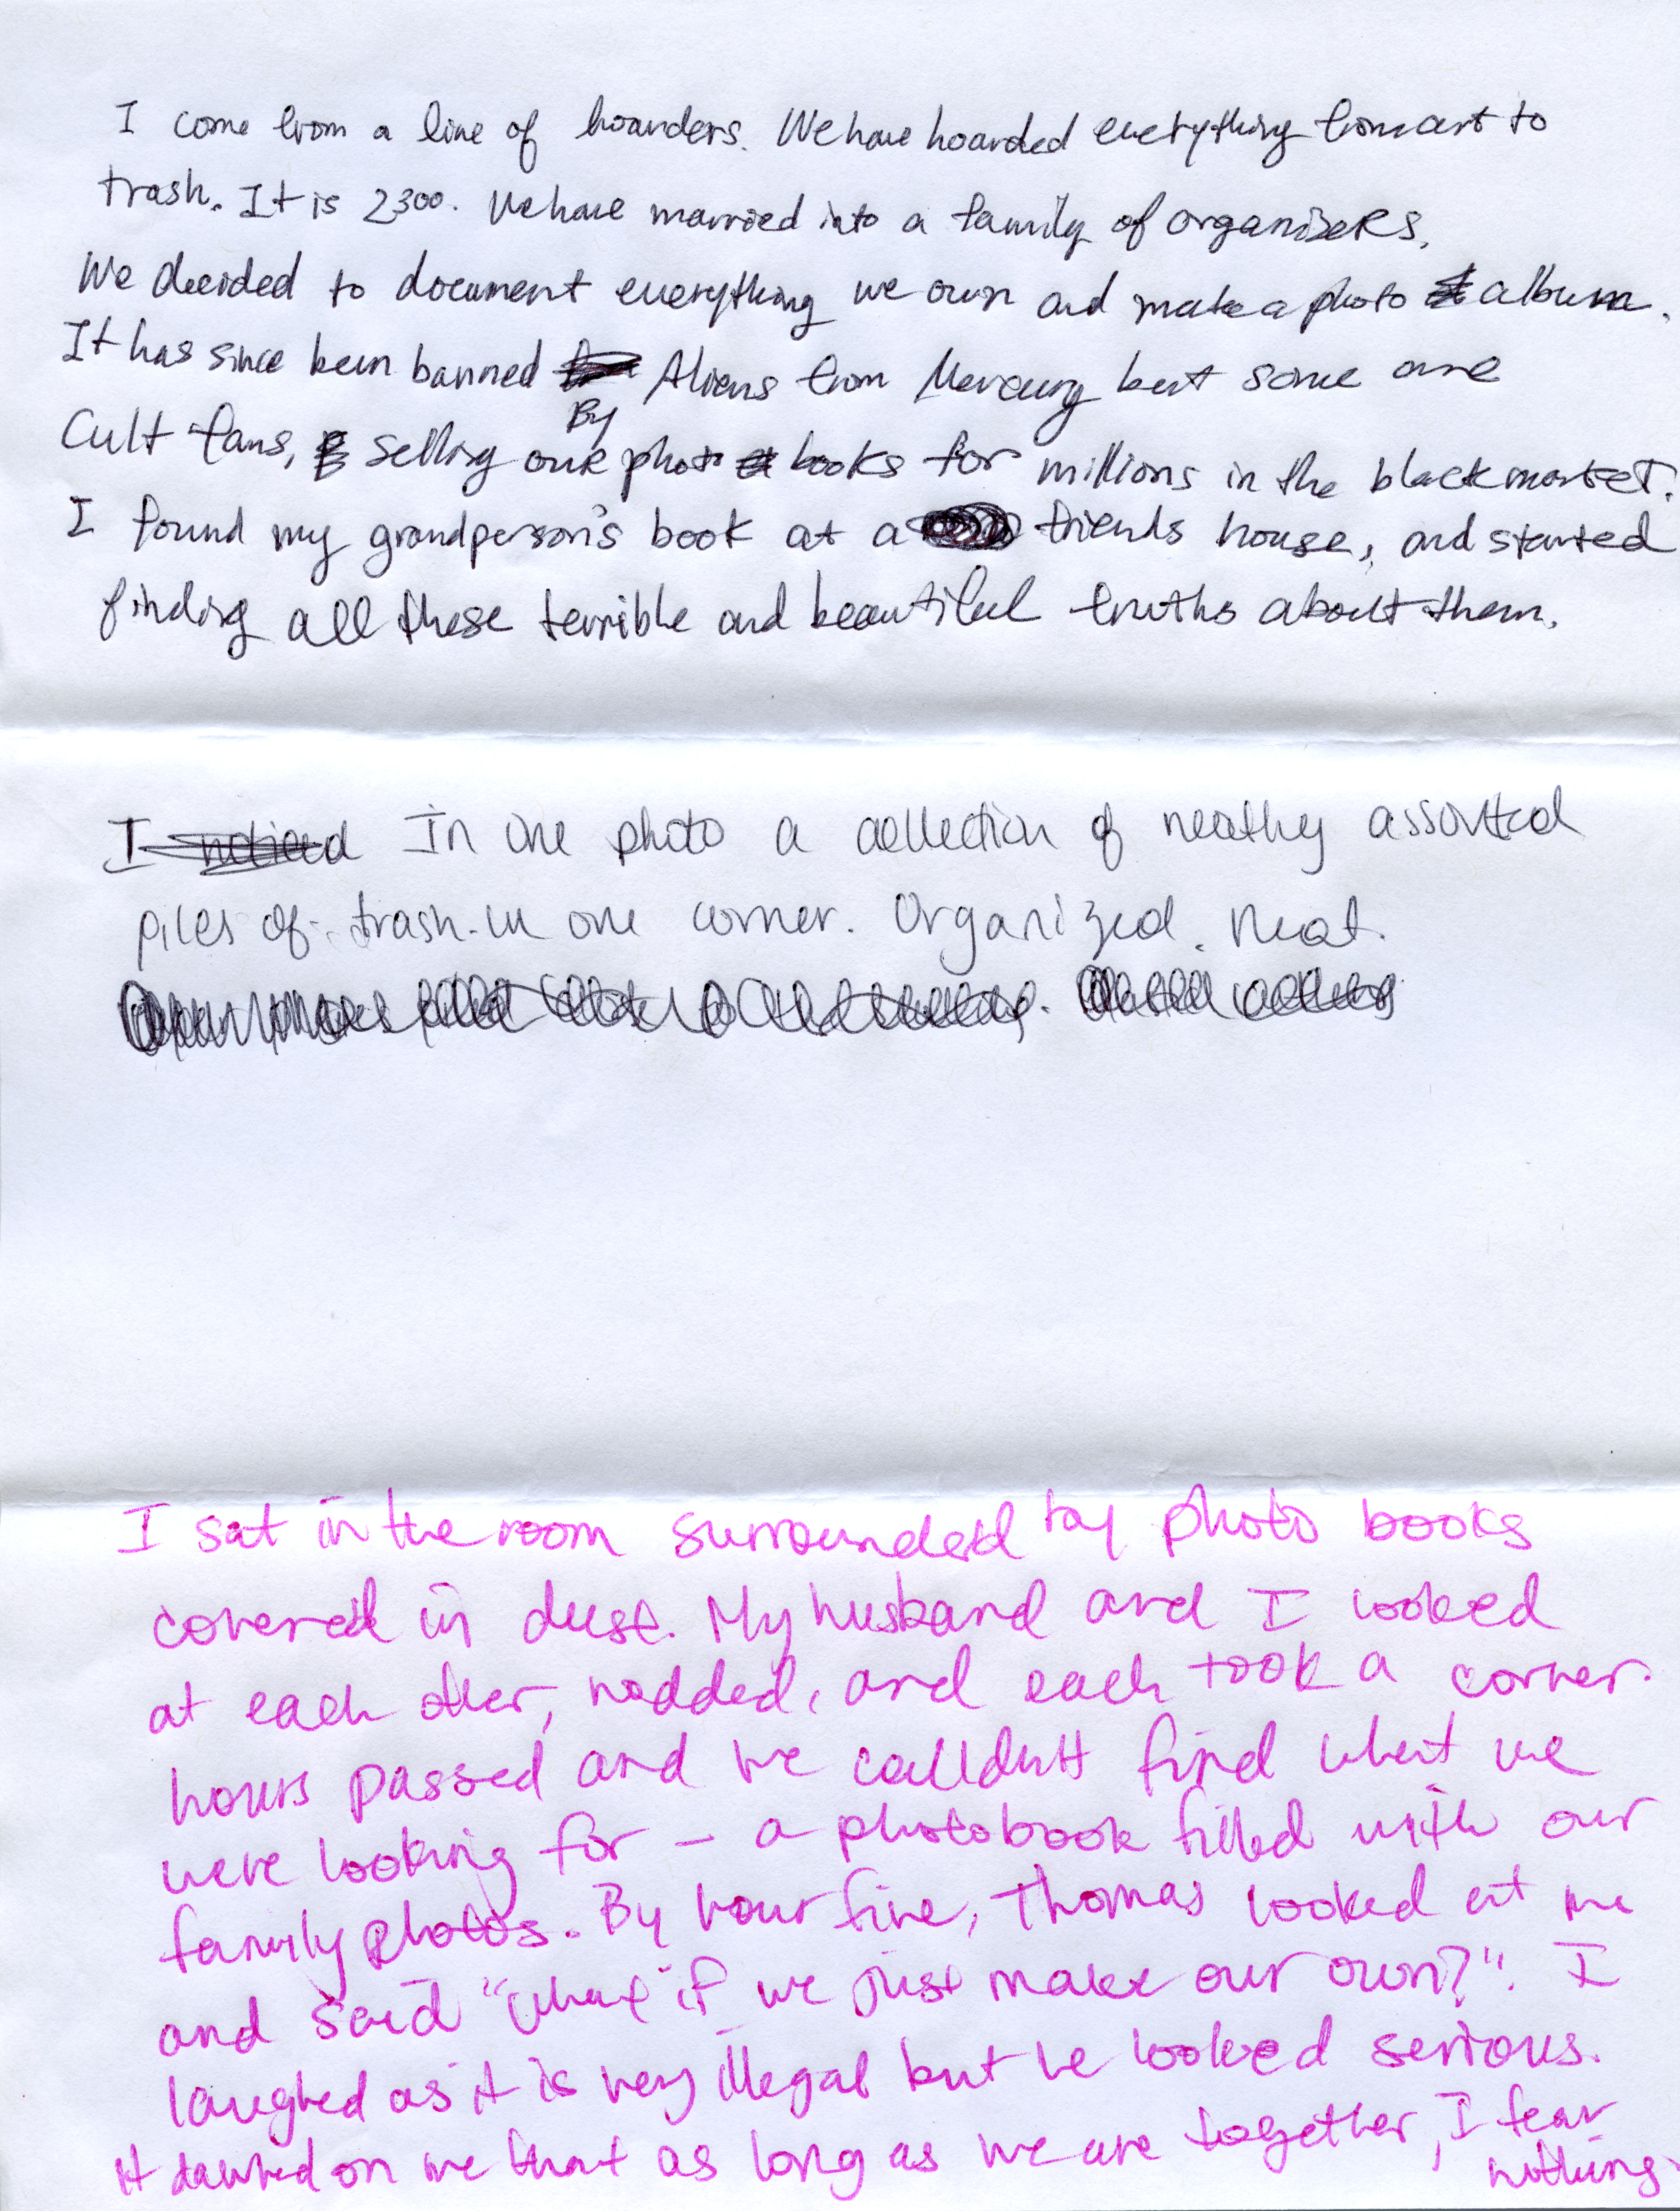 I come from a line of hoarders. We have hoarded everything from art to
trash. It is 2300. We have married into a family of organisers.
We decided to document everything we own and make a photo album.
It has since been banned By Aliens from Mercury but some are
Cult fans, selling our photo books for millions in the black market.
I found my grandperson's book at a friends house, and started
finding all these terrible and beautiful truths about them.
I noticed In one photo a collection of neathy assorted
piles of trash in one corner. Organized. Neat.
I sat in the room surrounded by photo books
covered in dust. My husband and I looked
at each other, nodded, and each took a corner.
hours passed and we couldn't find what we
were looking for - a photobook filled with our
family photos. By hour five, Thomas looked at me
and said "what if we just make our own?". I
laughed as it is very illegal but he looked serious.
It dawned on me that as long as we are together, I fear
nothing.